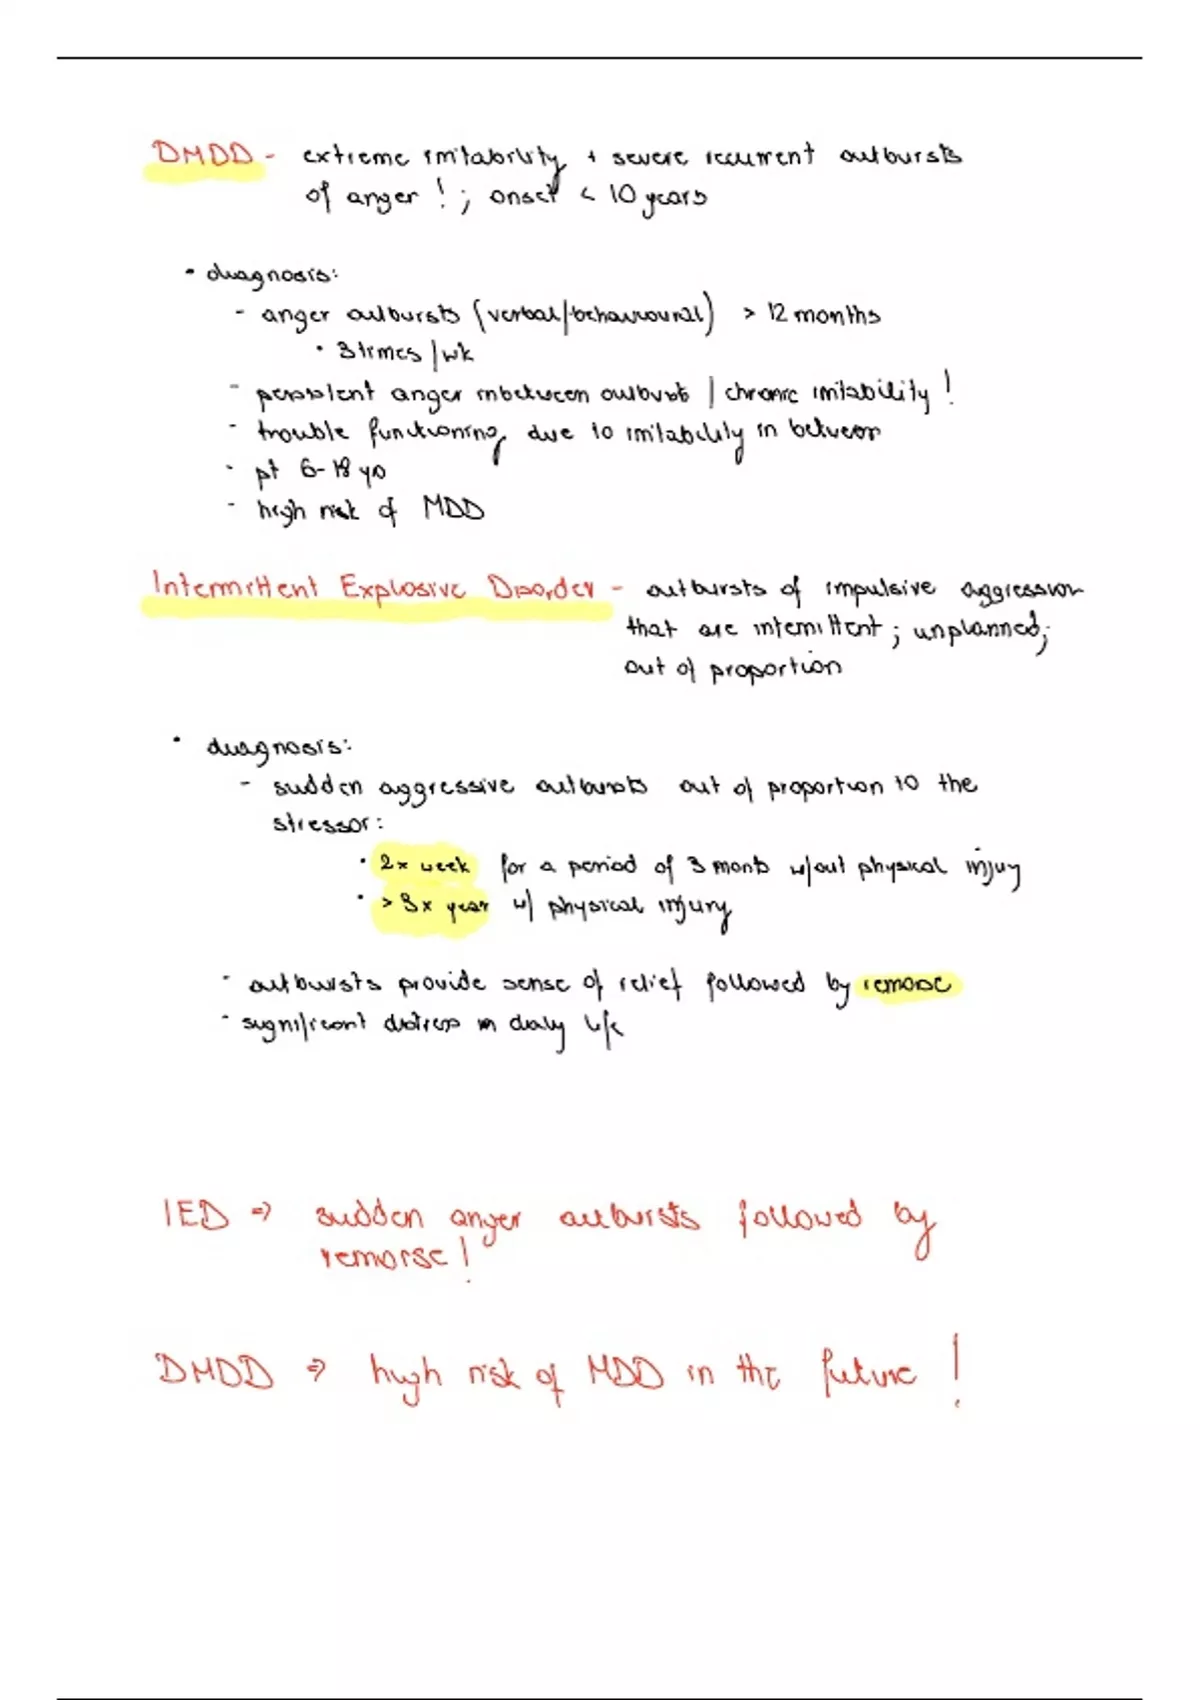 DMDD - extreme irritability + severe recurrent outbursts
of anger ! ; onset < 10 years
• diagnosis:
- anger outbursts (verbal/behavioural) > 12 months
• 3 times / wk
- persistent anger inbetween outbursts / chronic irritability !
- trouble functioning due to irritability in between
- pt 6-18 yo
- high risk of MDD
Intermittent Explosive Disorder - outbursts of impulsive aggression
that are intermittent ; unplanned;
out of proportion
• diagnosis:
- sudden aggressive outbursts out of proportion to the
stressor:
• 2x week for a period of 3 months w/out physical injury
• > 3x year w/ physical injury
- outbursts provide sense of relief followed by remorse
- significant distress in daily life
IED ⇒ sudden anger outbursts followed by
remorse !
DMDD ⇒ high risk of MDD in the future !